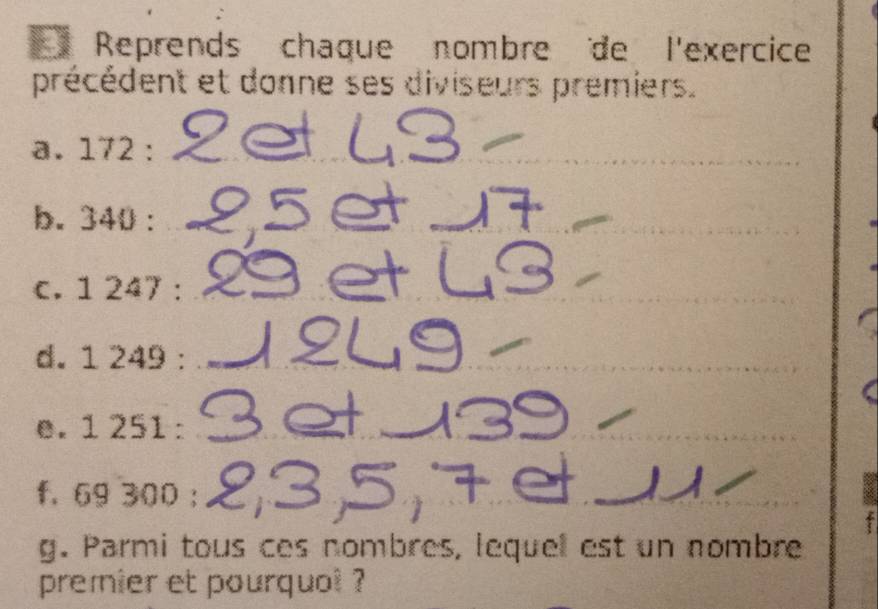 3 Reprends chaque nombre de l'exercice
précédent et donne ses diviseurs premiers.
a. 172 : 2 et 43
b. 340 : 2,5 et 17
c. 1 247 : 29 et 43
d. 1 249 : 1249
e. 1 251 : 3 et 139
f. 69 300 : 2,3,5,7 et 11
g. Parmi tous ces nombres, lequel est un nombre
premier et pourquoi ?